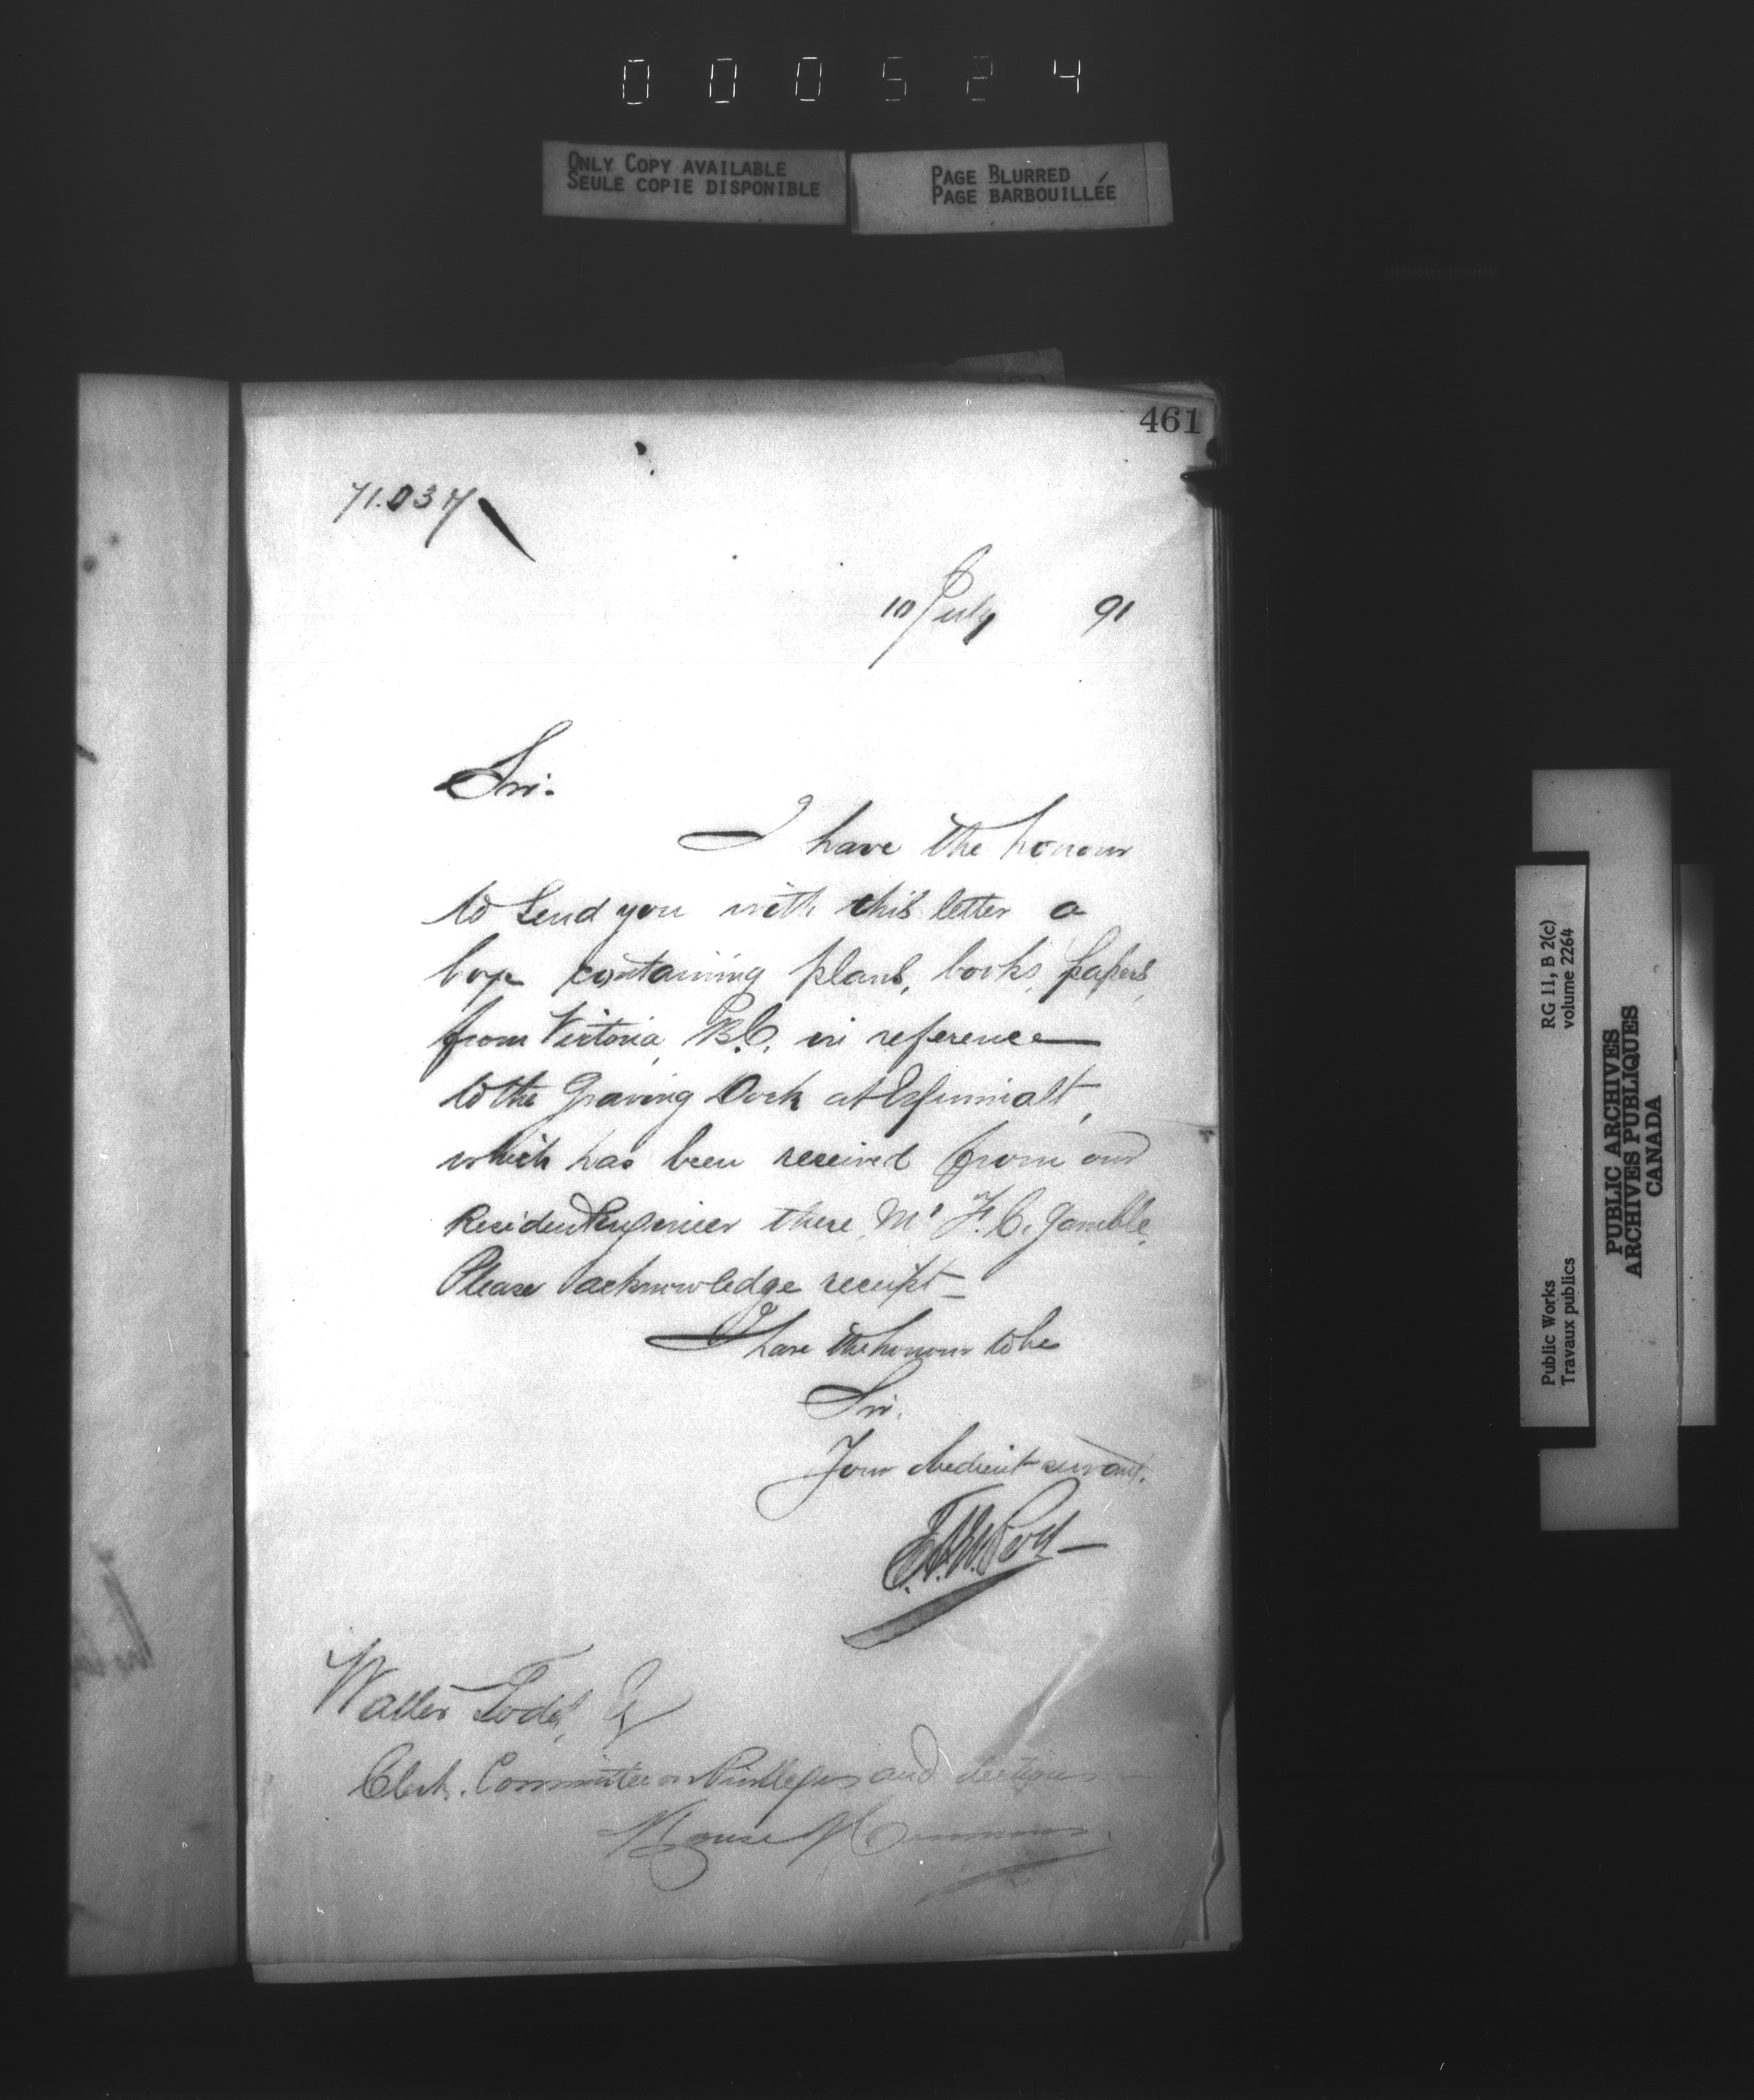 000524
ONLY COPY AVAILABLE
SEULE COPIE DISPONIBLE
PAGE BLURRED
PAGE BARBOUILLÉE
461
71.037
10 July 91
Sir.
I have the honour
to send you with this letter a
box containing plans, books, papers,
from Victoria, B.C. in reference
to the Graving Dock at Esquimalt,
which has been received from our
Resident Engineer there, Mr F. C. Gamble.
Please acknowledge receipt_
I have the honour to be
Sir.
Your obedient servant.
Walter Todd, Esq
Clerk. Committee on Privileges and elections
House of Commons.
RG 11, B 2(c)
volume 2264
Public Works
Travaux publics
PUBLIC ARCHIVES
ARCHIVES PUBLIQUES
CANADA